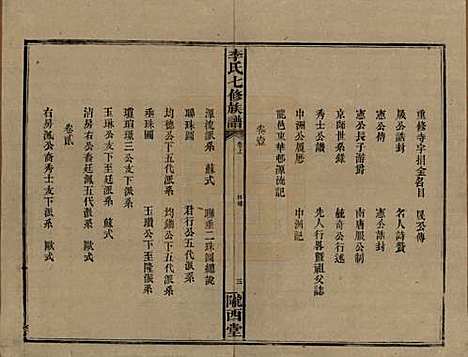 重修寺字捐金名目　艮公傳
展公誥封　名人詩贊
憲公傳　憲公誥封
憲公長子游爵　南唐服公制
京師世系錄　毓奇公行述
秀士公譜　先人行畧暨祖父誌
中洲公履歷　中洲記
龍邑東華邨源流記
卷壹
李氏七修族譜
卷上
目錄
三
隴西堂
源流派系　蘇式　聯垂二珠圖總說
聯珠圖　君行公下五代派系
均德公下五代派系　均鎮公下五代派系
垂珠圖　玉瓚公下至隆派系
瓊瑄環三公支下派系
玉琳公支下派系　蘇式
沾房右公裔廷諷五代派系　歐式
卷貳
右房元公裔秀士支下派系　歐式